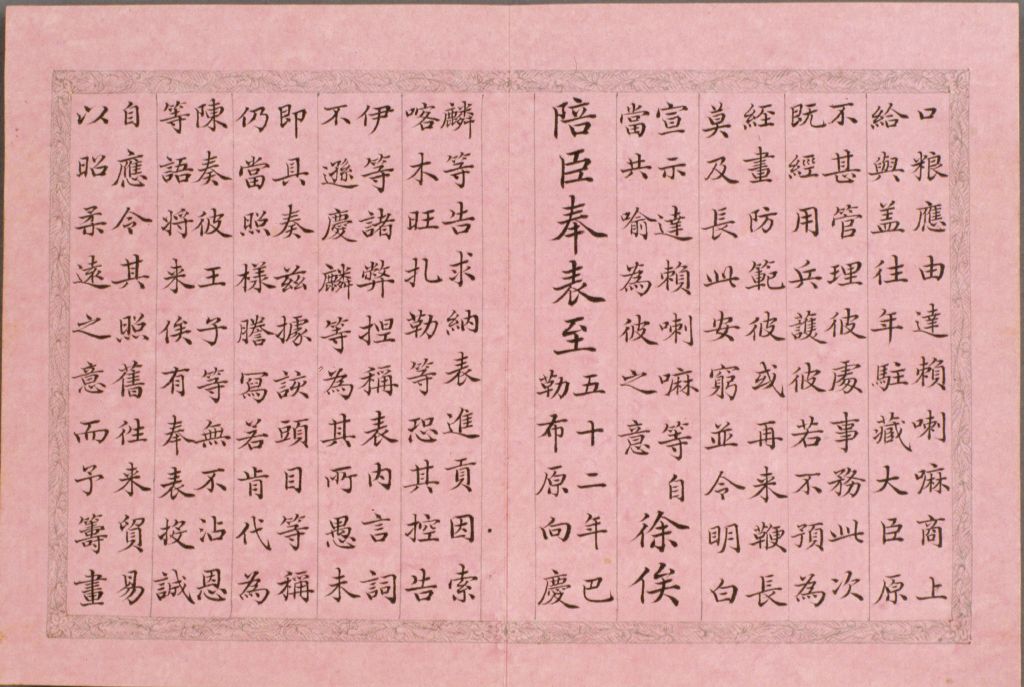 口粮應由達賴喇嘛商上
給與盖往年駐藏大臣原
不甚管理彼處事務此次
既經用兵護彼若不預為
經畫防範彼或再来鞭長
莫及長此安窮並令明白
宣示達賴喇嘛等自
當共喻為彼之意
徐俟
陪臣奉表至
五十二年巴
勒布原向慶
麟等告求納表進貢因索
喀木旺扎勒等恐其控告
伊等諸弊揑稱表內言詞
不遜慶麟等為其所愚未
即具奏兹據該頭目等稱
仍當照樣謄寫若肯代為
陳奏彼王子等無不沾恩
等語将来俟有奉表投誠
自應令其照舊往来貿易
以昭柔遠之意而予籌畫